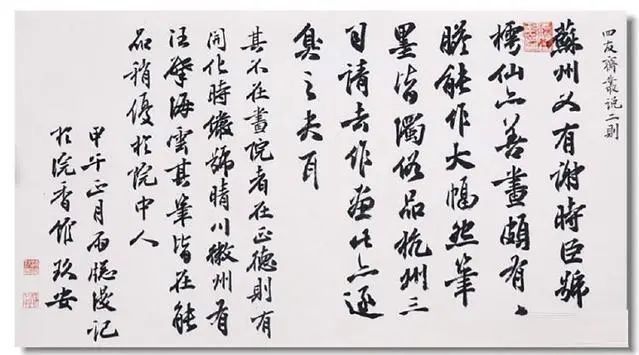 四友齋叢說二則
蘇州又有謝時臣號
樗仙亦善畫頗有
膽能作大幅然筆
墨皆濁俗品杭州三
司請去作畫此亦逐
臭之夫耳
其不在畫院者在正德則有
開化時儼號晴川徽州有
汪肇海雲其筆皆在能
品稍優於院中人
甲午正月雨窗漫記
於浣香館 玖安